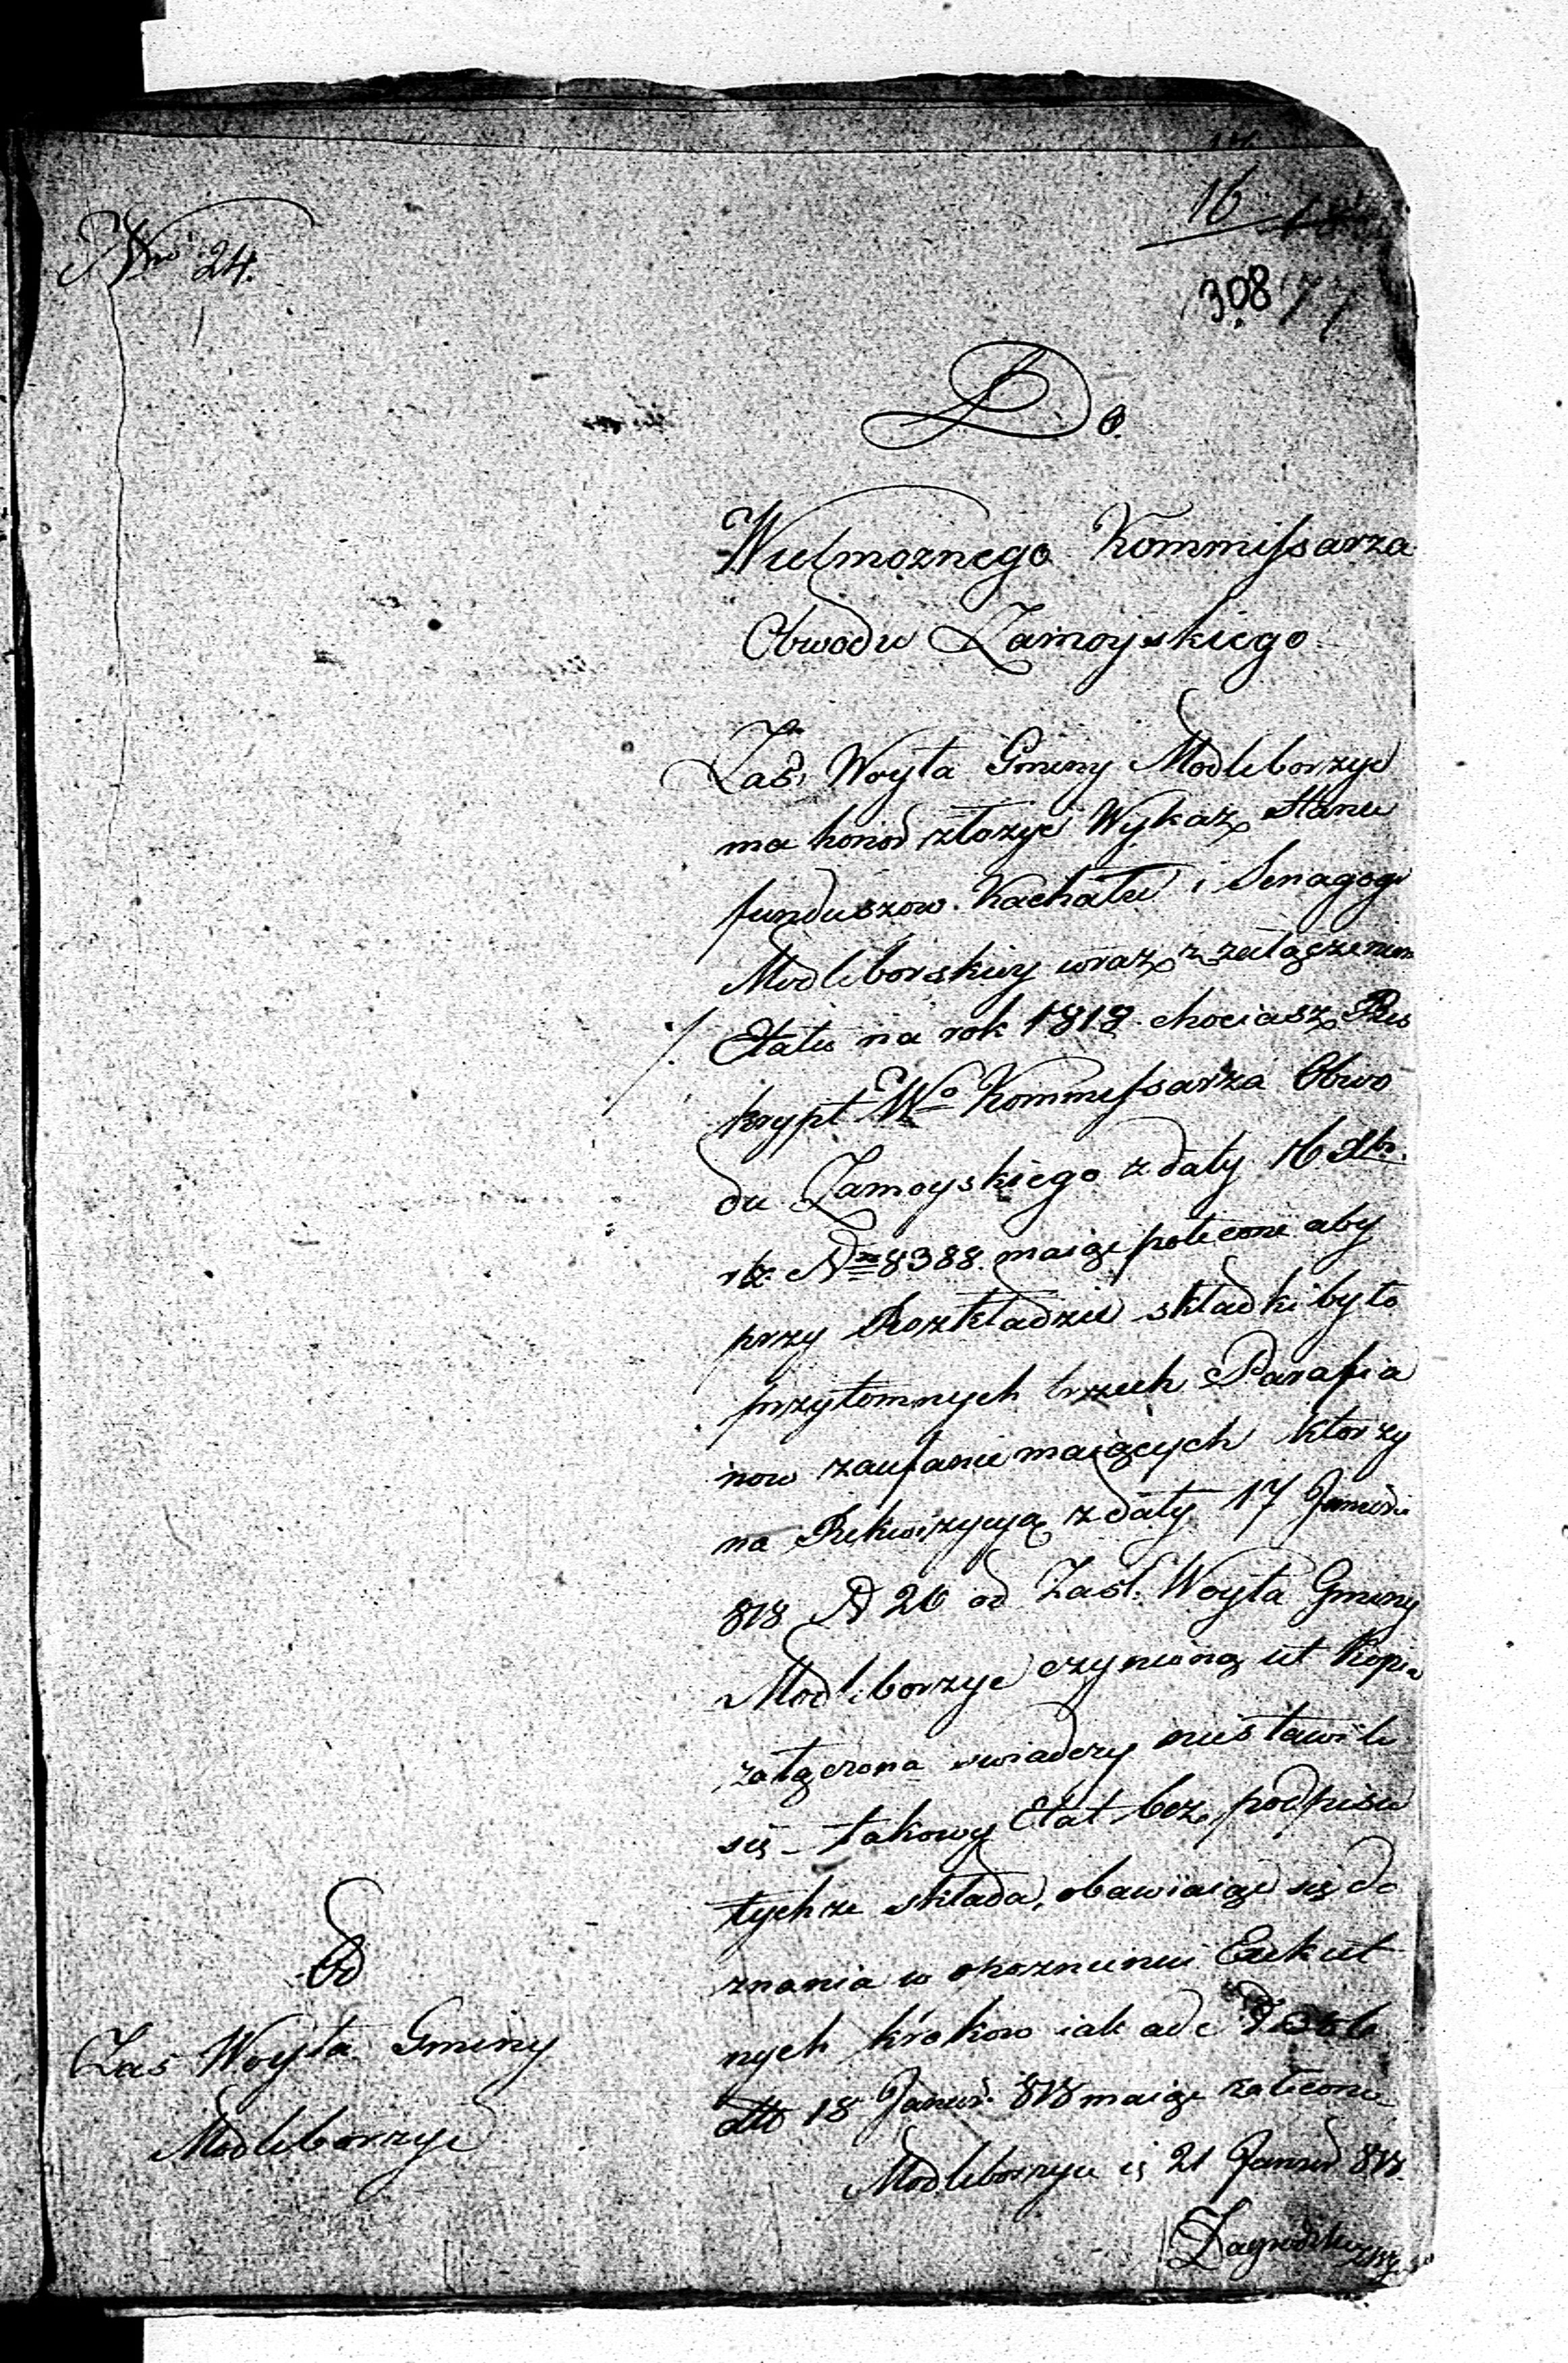 Nro 24.
16
308 77
Do
Wielmożnego Kommissarza
Obwodu Zamoyskiego
Zas: Woyta Gminy Modliborzyc
ma honor złożyć Wykaz Stanu
funduszow Kachału i Senagogi
Modliborskiey wraz z załączeniem
Etatu na rok 1818 chociasz Res
krypt Wo Kommissarza Obwo
du Zamoyskiego z daty 16
Nro 8388. maiąc polecone aby
przy Rozkładzie składki było
przytomnych trzech Parafia
now zaufanie maiących ktorzy
na Rekwizycyą z daty 17 Januar
818 N 20 od Zast. Woyta Gminy
Modliborzyc czynioną ut Kopia
załączona swiadczy niestawili
się – takowy Etat bez podpisu
tychże składa, obawiaiąc się do
znania w opoznieniu Exekut
nych krokow iak ad
dtto 18 Januar. 818 maiąc zalecone
Modliborzyce d 21 Januar 818.
Od
Zas Woyta Gminy
Modliborzyc